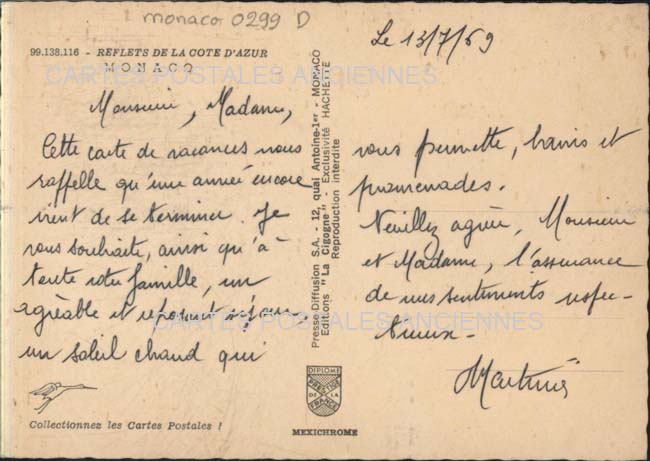 monaco 0299 D
99.138.116 - REFLETS DE LA COTE D'AZUR
MONACO
CARTES POSTALES ANCIENNES
Monsieur, Madame,
Cette carte de vacances vous
rappelle qu'une année encore
vient de se terminer. Je
vous souhaite, ainsi qu'à
toute votre famille, un
agréable et reposant séjour,
un soleil chaud qui
Collectionnez les Cartes Postales !
Presse-Diffusion S.A. - 12, quai Antoine-1er - MONACO
Editions "La Cigogne" - Exclusivité HACHETTE
Reproduction interdite
DIPLOME
PRESTIGE
DE LA
FRANCE
MEXICHROME
Le 13/7/69
vous permette, bains et
promenades.
Veuillez agréer, Monsieur
et Madame, l'assurance
de mes sentiments respec-
tueux.
CARTES POSTALES ANCIENNES